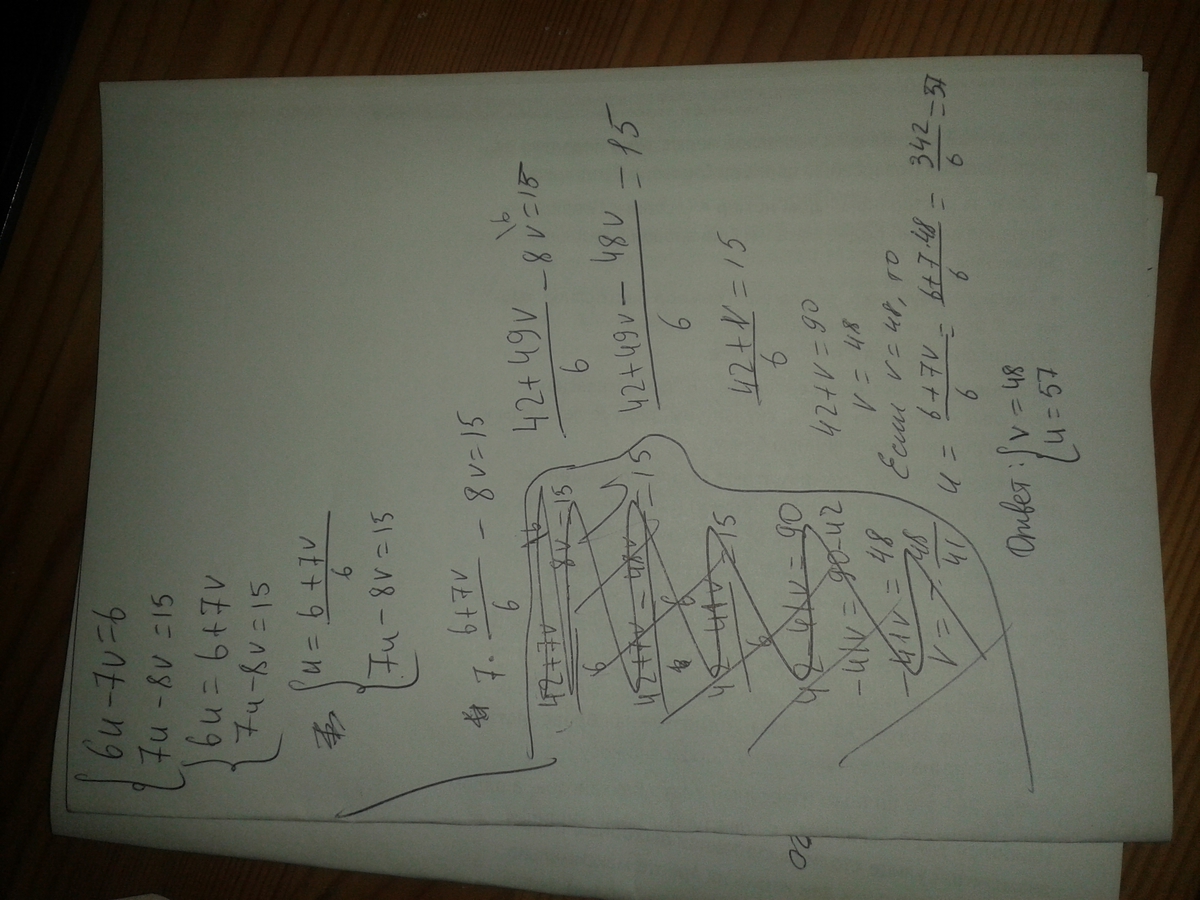 {6u - 7v = 6
{7u - 8v = 15
{6u = 6 + 7v
{7u - 8v = 15
{u = 6 + 7v / 6
{7u - 8v = 15
7 · 6+7v / 6 - 8v = 15
42+7v / 6 - 8v \6 = 15
42+7v - 48v / 6 = 15
42 - 41v / 6 = 15
42 - 41v = 90
-41v = 90-42
-41v = 48
v = - 48 / 41
42 + 49v / 6 - 8v \6 = 15
42+49v - 48v / 6 = 15
42+v / 6 = 15
42+v = 90
v = 48
Если v = 48, то
u = 6+7v / 6 = 6+7·48 / 6 = 342 / 6 = 57
Ответ: {v = 48
{u = 57